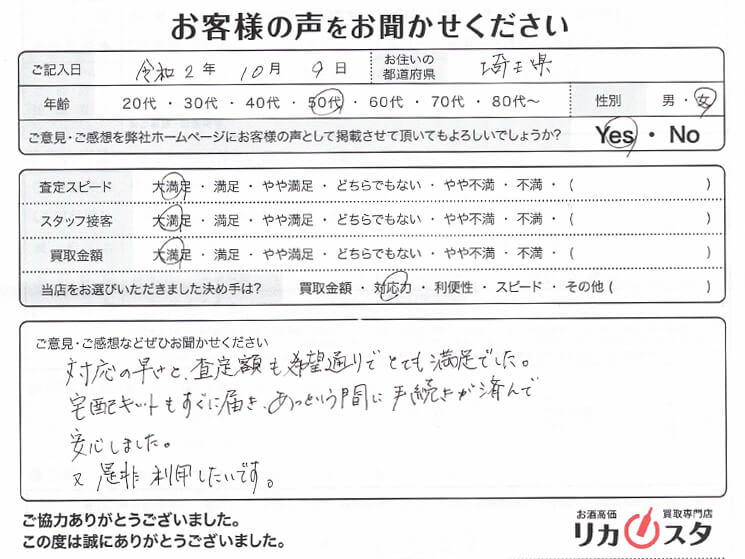 お客様の声をお聞かせください
ご記入日 令和2年 10月 9日 お住いの都道府県 埼玉県
年齢 20代 ・ 30代 ・ 40代 ・ 50代 ・ 60代 ・ 70代 ・ 80代～ 性別 男 ・ 女
ご意見・ご感想を弊社ホームページにお客様の声として掲載させて頂いてもよろしいでしょうか? Yes ・ No
査定スピード 大満足 ・ 満足 ・ やや満足 ・ どちらでもない ・ やや不満 ・ 不満 ・ ( )
スタッフ接客 大満足 ・ 満足 ・ やや満足 ・ どちらでもない ・ やや不満 ・ 不満 ・ ( )
買取金額 大満足 ・ 満足 ・ やや満足 ・ どちらでもない ・ やや不満 ・ 不満 ・ ( )
当店をお選びいただきました決め手は? 買取金額 ・ 対応力 ・ 利便性 ・ スピード ・ その他 ( )
ご意見・ご感想などぜひお聞かせください
対応の早さと、査定額も希望通りでとても満足でした。
宅配キットもすぐに届き、あっという間に手続きが済んで
安心しました。
又是非利用したいです。
ご協力ありがとうございました。
この度は誠にありがとうございました。
お酒高価 買取専門店
リカスタ